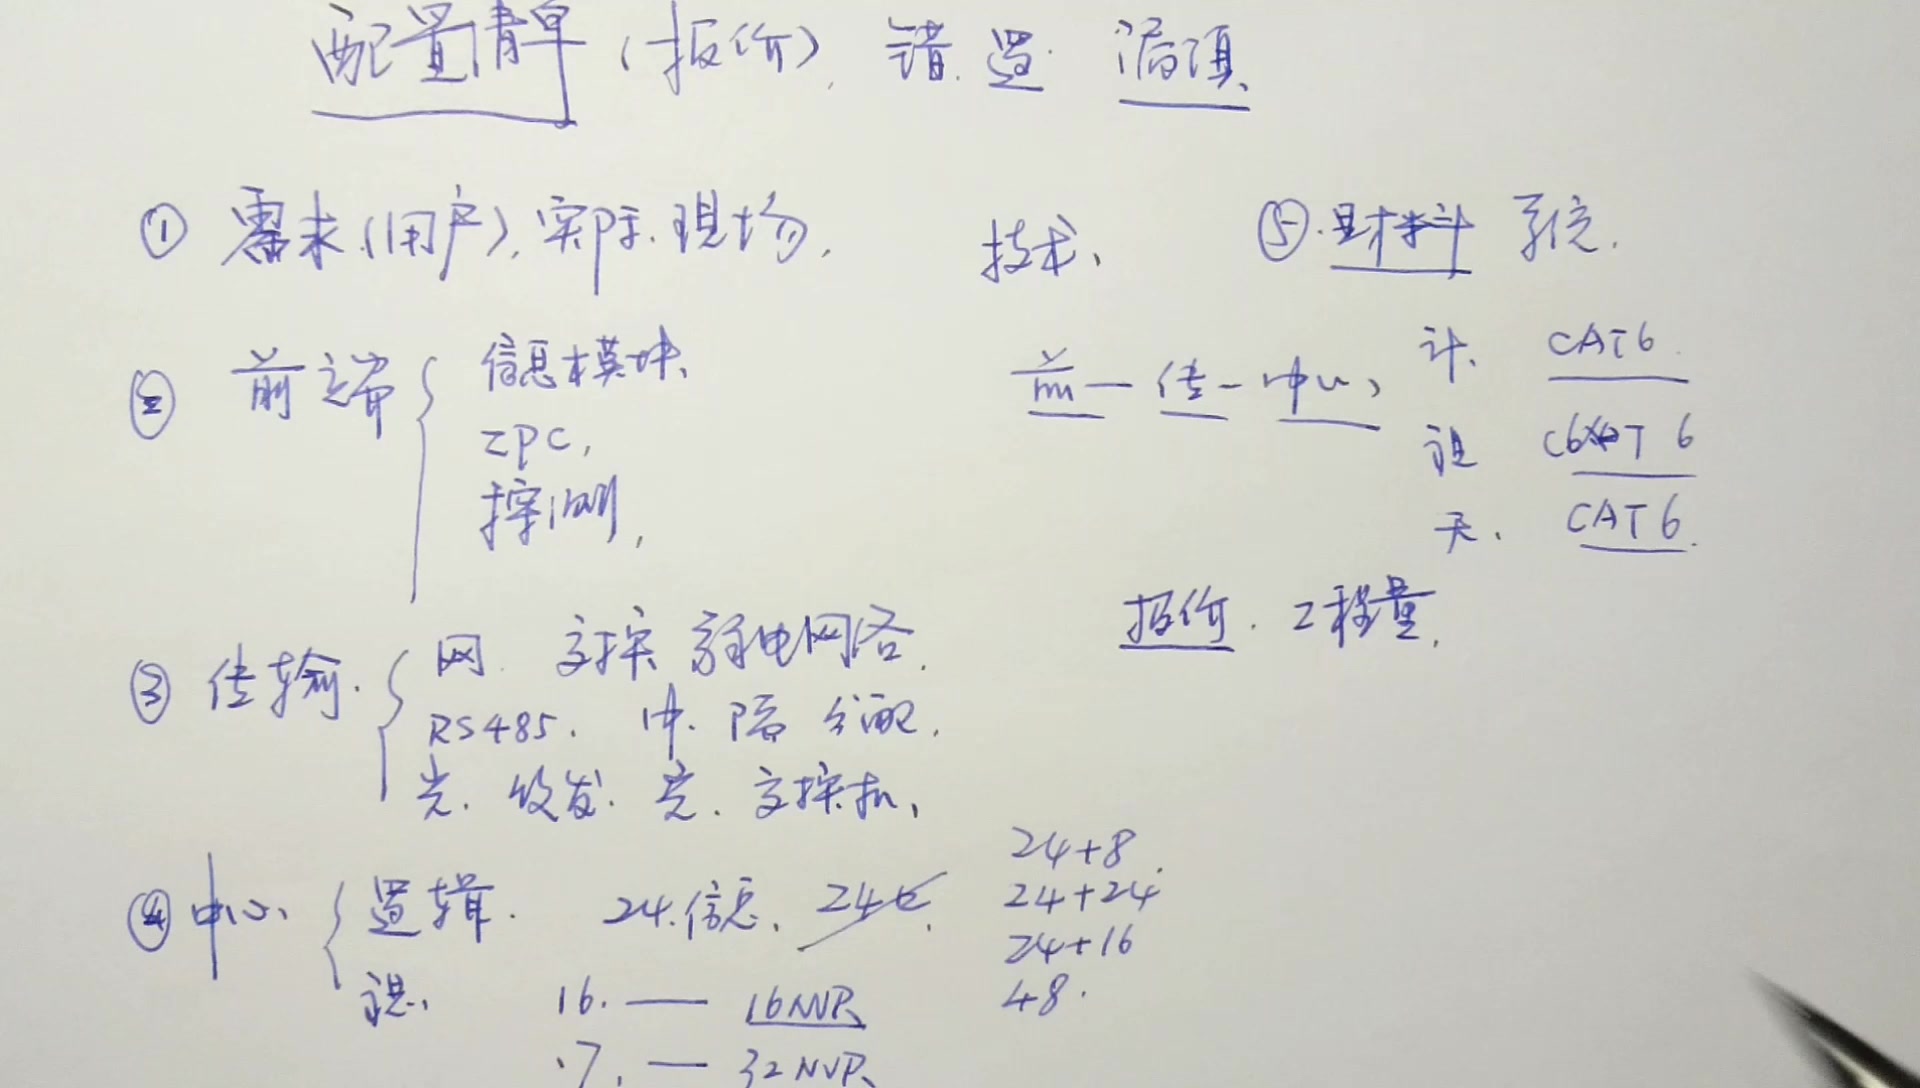 配置清单(报价), 错 置 漏项、
① 需求(用户), 实际.现场,
技术、
⑤.材料 系统.
② 前端
信息模块、
IPC,
探测,
前—传—中心,
计. CAT6.
CAT 6
天. CAT6.
报价. 工程量,
③ 传输.
网. 交换 弱电网络.
RS485. 中. 隔 分配.
光. 收发. 光. 交换机、
④ 中心、
逻辑. 24.信息、24口.
设、
16. — 16NVR、
17. — 32NVR、
24+8.
24+24.
24+16
48.